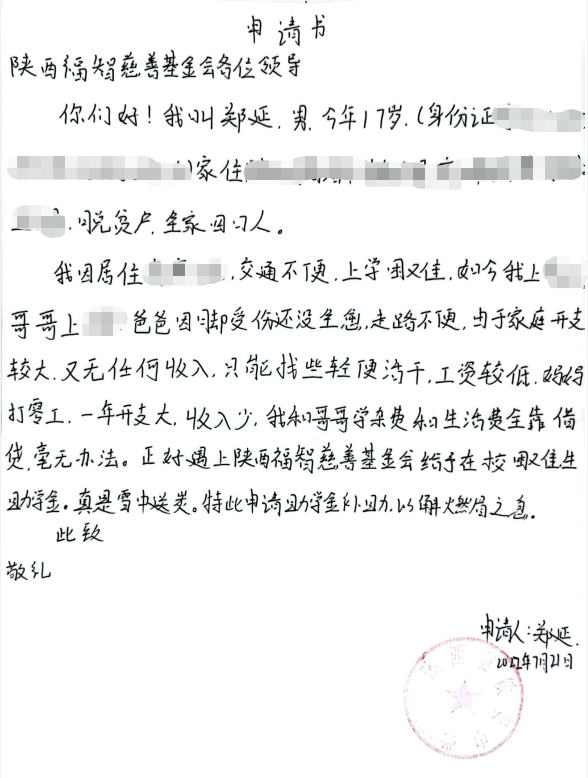 申请书
陕西福智慈善基金会各位领导
你们好！我叫郑延.男.今年17岁.(身份证
)家住
.脱贫户.全家四口人。
我因居住 .交通不便.上学困难.如今我上
哥哥上 .爸爸因脚受份还没全愈.走路不便.由于家庭开支
较大.又无任何收入.只能找些轻便活干.工资较低.妈妈
打零工.一年开支大.收入少.我和哥哥学杂费和生活费全靠借
贷.毫无办法。正好遇上陕西福智慈善基金会给予在校困难生
助学金.真是雪中送炭。特此申请助学金补助.以解燃眉之急.
此致
敬礼
申请人:郑延.
2022年7月21日